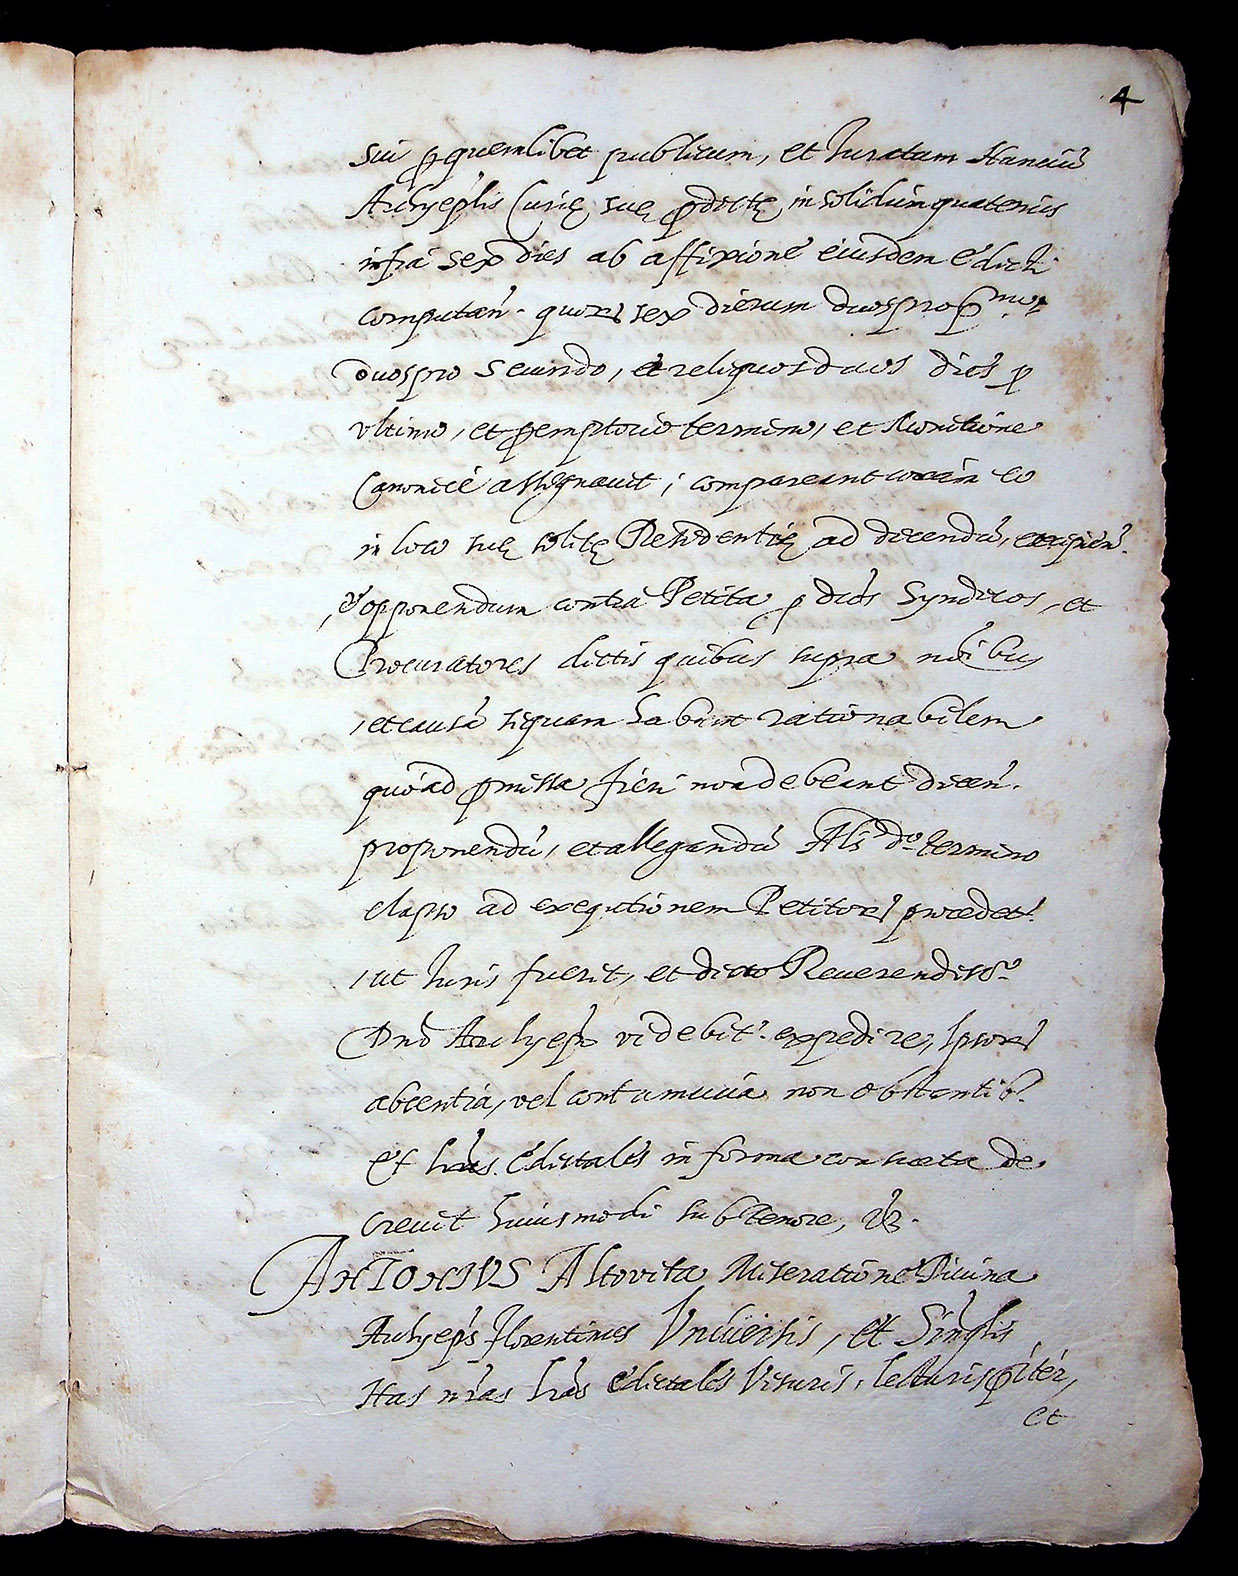 4
sui p quemlibet publicum, et Iuratum Nunciũ
Archyep̃lis Curię suę p̃dictę insolidum quatenus
infra sex dies ab affixione eiusdem Edicti
computañ. quor sex dierum duos pro p.º mo
Duos pro secundo, et reliquos duos dies p
ultimo, et peremptorio termino, et Monitione
Canonicè assignauit; compareant coram eo
in loco suę solitę Residentię ad dicendũ, excipieñ.
et opponendum contra Petita p dictos Syndicos, et
Procuratores dictis quibus supra noĩbus
et causã siquam habent rationabilem
quoad p̃missa fieri non debeant diceñ.
proponendũ, et allegandũ Als dº termino
elapso ad exequtionem Petitor procedet.
ut Iuris fuerit, et dicto Reuerendissº
Dnõ Archyepõ videbit. expedire, Ipsor
absentia, vel contumacia non obstantib.
Et l̃ras Edictales in forma consueta de
creuit huiusmodi sub tenore, vz.
ANTONIVS Altovita Miseratione Diuina
Archyep̃s Florentinus Vniuersis, et Singlis
Has ñras l̃ras Edictales Visuris, lecturis p̃iter,
et